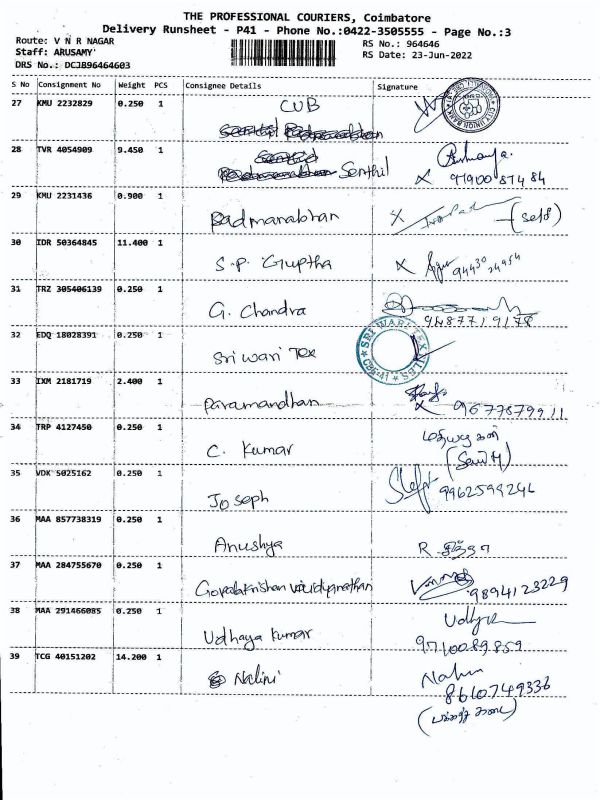 THE PROFESSIONAL COURIERS, Coimbatore
Delivery Runsheet - P41 - Phone No.:0422-3505555 - Page No.:3
Route: V N R NAGAR
Staff: ARUSAMY'
DRS No.: DCJB96464603
RS No.: 964646
RS Date: 23-Jun-2022
S No Consignment No Weight PCS Consignee Details Signature
27 KMU 2232829 0.250 1 CUB
28 TVR 4054909 9.450 1 Senthil
97900 87484
29 KMU 2231436 0.900 1 Padmanabhan (self)
30 IDR 50364845 11.400 1 S.P. Gruptha 94430 24954
31 TRZ 305406139 0.250 1 G. Chandra 9487719178
32 EDQ 18028391 0.250 1 Sri wari Tex
SRI WARI TEXTILES
CBE-41
33 IXM 2181719 2.400 1 Paramandhan 9677879911
34 TRP 4127450 0.250 1 C. Kumar
35 VDK 5025162 0.250 1 Joseph 9962599246
36 MAA 857738319 0.250 1 Anushya R
37 MAA 284755670 0.250 1 Gopalakrishan vaidyanathan 9894123229
38 MAA 291466085 0.250 1 Udhaya kumar
9710089859
39 TCG 40151202 14.200 1 Nalini
8610749336